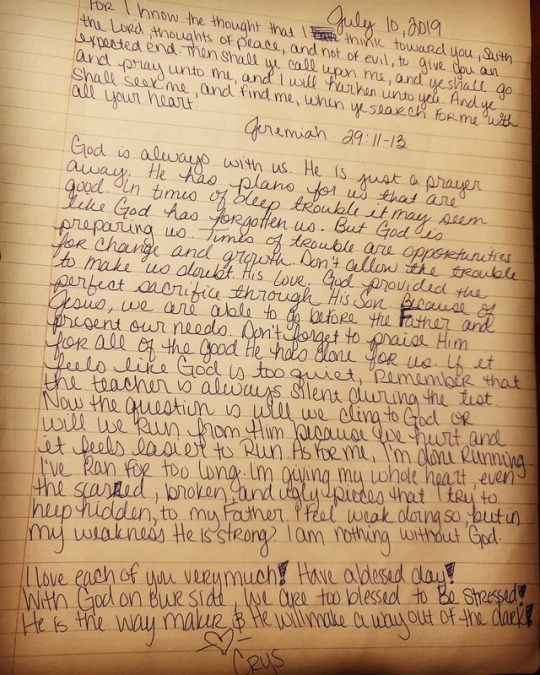 July 10, 2019
For I know the thought that I think toward you, Saith
the Lord, thoughts of peace, and not of evil, to give you an
expected end. Then shall ye call upon me, and ye shall go
and pray unto me, and I will harken unto you. And ye
shall seek me, and find me, when ye search for me with
all your heart.
Jeremiah 29:11-13
God is always with us. He is just a prayer
away. He has plans for us that are
good. In times of deep trouble it may seem
like God has forgotten us. But God is
preparing us. Times of trouble are opportunities
for change and growth. Don't allow the trouble
to make us doubt His love. God provided the
perfect sacrifice through His Son. Because of
Jesus, we are able to go before the Father and
present our needs. Don't forget to praise Him
for all of the good He has done for us. If it
feels like God is too quiet, Remember that
the teacher is always silent during the test.
Now the question is will we cling to God or
will we Run from Him because we hurt and
it feels easier to Run. As for me, I'm done Running
I've Ran for too long. I'm giving my whole heart, even
the scarred, broken, and ugly pieces that I try to
keep hidden, to my Father. I feel weak doing so, but in
my weakness He is strong. I am nothing without God.
I love each of you very much! Have a blessed day!
With God on our side, we are too blessed to Be stressed!
He is the way maker & He will make a way out of the dark!
Crys